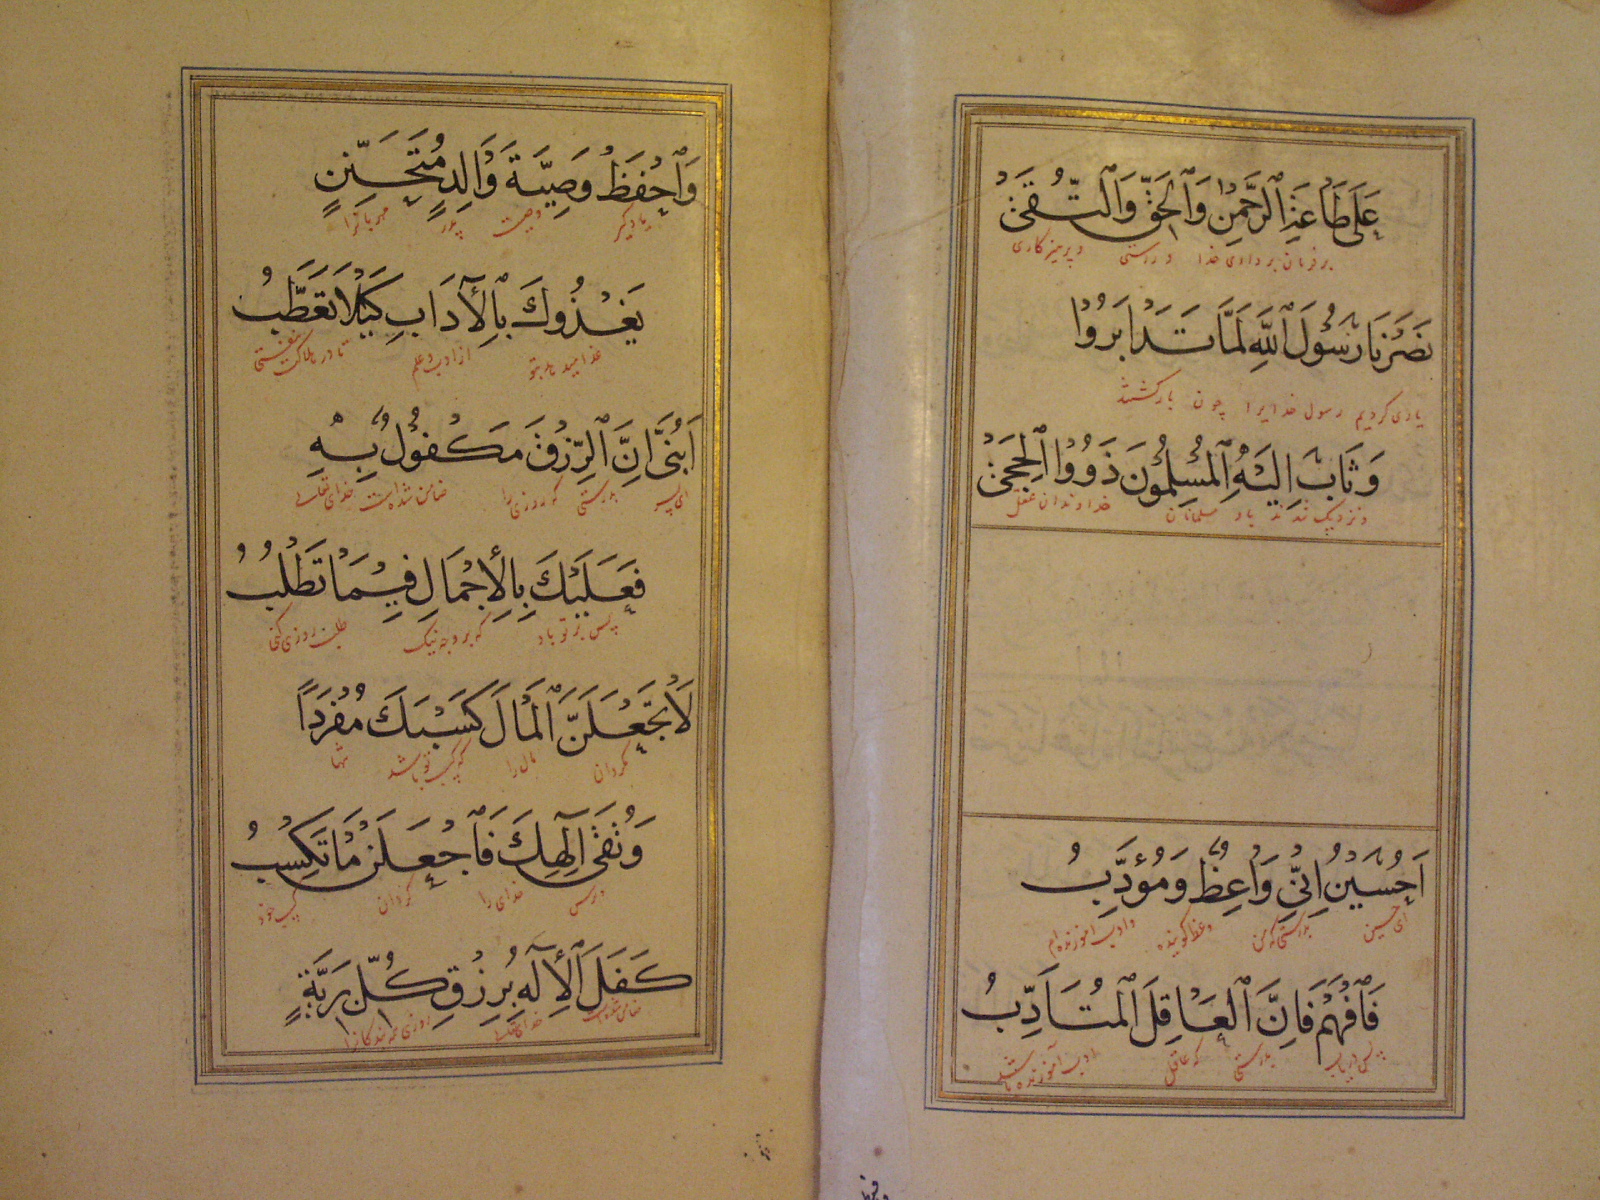 عَلَى طَاعَةِ الرَّحْمٰنِ وَالْحَقِّ وَالتُّقَى
بر فرمان برداری خدا و راستی و پرهیزکاری
نَصَرْنَا رَسُولَ اللّٰهِ لَمَّا تَدَابَرُوا
یاری کردیم رسول خدایرا چون بازکشتند
وَثَابَ اِلَيْهِ الْمُسْلِمُونَ ذَوُوا الْحِجَى
و نزدیک شدند باو مسلمانان خداوندان عقل
اَحُسَيْنُ اِنِّي وَاعِظٌ وَمُؤَدِّبُ
ای حسین بدرستی که من وعظ کوینده و ادب آموزنده ام
فَافْهَمْ فَاِنَّ الْعَاقِلَ الْمُتَاَدِّبُ
پس دریاب بدرستی که عاقل ادب آموزنده باشد
وَاحْفَظْ وَصِيَّةَ وَالِدٍ مُتَحَنِّنٍ
یاد کیر وصیت پدر مهربانرا
يَغْذُوكَ بِالْآدَابِ كَيْلَا تَعْطَبُ
غذا میدهد بتو از ادب و علم تا در هلاکت نیفتی
اَبُنَيَّ اِنَّ الرِّزْقَ مَكْفُولٌ بِهِ
ای پسر بدرستی که روزی را ضامن شده است خدای تعالی
فَعَلَيْكَ بِالْاِجْمَالِ فِيمَا تَطْلُبُ
پس بر تو باد که بر وجه نیک طلب روزی کنی
لَا تَجْعَلَنَّ الْمَالَ كَسْبَكَ مُفْرَدًا
مکردان مال را که کسب تو باشد تنها
وَتُقَى اِلٰهِكَ فَاجْعَلَنْ مَا تَكْسِبُ
و ترس خدای را کردان کسب خود
كَفَلَ الْاِلٰهُ بِرِزْقِ كُلِّ بَرِيَّةٍ
ضامن شده است خدای تعالی روزی همه بندکانرا